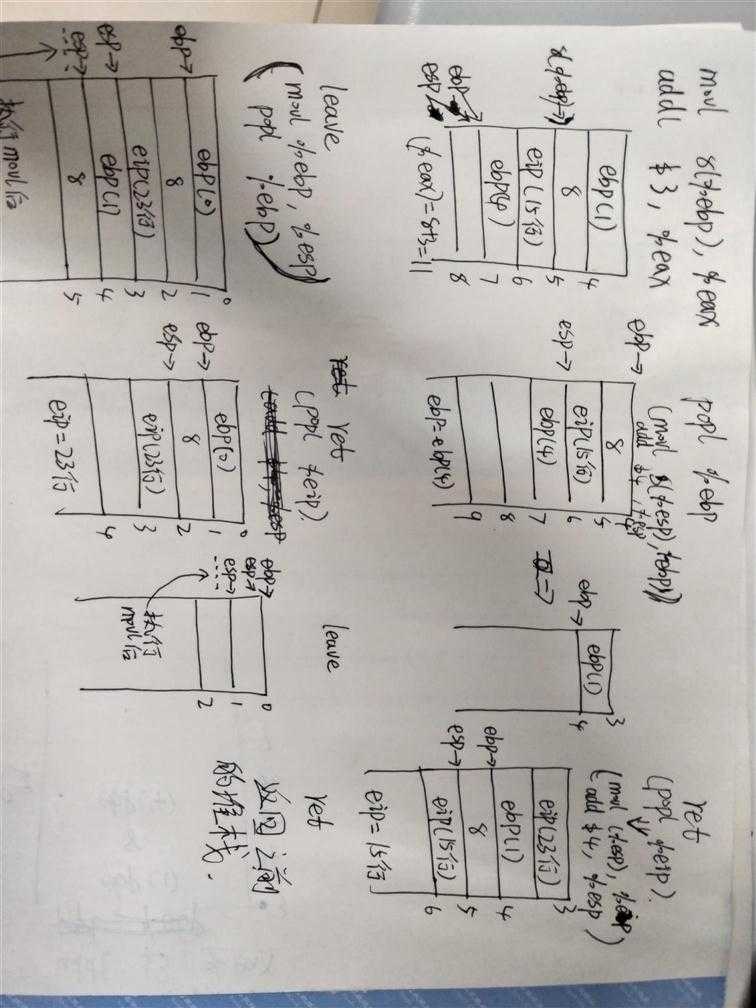 movl 8(%ebp), %eax
addl $3, %eax
8(%ebp)→
ebp→
esp→
ebp(1)
8
eip(15行)
ebp(4)
4
5
6
7
8
(%eax)=8+3=11
popl %ebp
(movl 8(%esp), %ebp)
add $4, %esp
ebp→
esp→
8
eip(15行)
ebp(4)
5
6
7
8
9
ebp=ebp(4)
ebp→
ebp(1)
3
4
ret
(popl %eip)
(movl (%esp), %eip
add $4, %esp)
ebp→
esp→
eip(23行)
ebp(1)
8
eip(15行)
3
4
5
6
eip=15行
leave
(movl %ebp, %esp
popl %ebp)
ebp→
esp→
esp→
ebp(0)
8
eip(23行)
ebp(1)
8
0
1
2
3
4
5
执行movl后
ret
(popl %eip)
ebp→
esp→
ebp(0)
8
eip(23行)
0
1
2
3
4
eip=23行
leave
ebp→
esp→
esp→
0
1
2
执行
movl后
ret
返回之前
的堆栈.